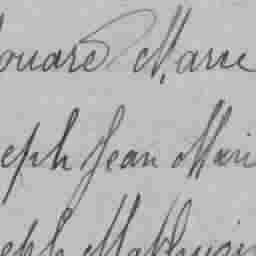 ouard Marie
eph Jean Mari
eph Mathurin